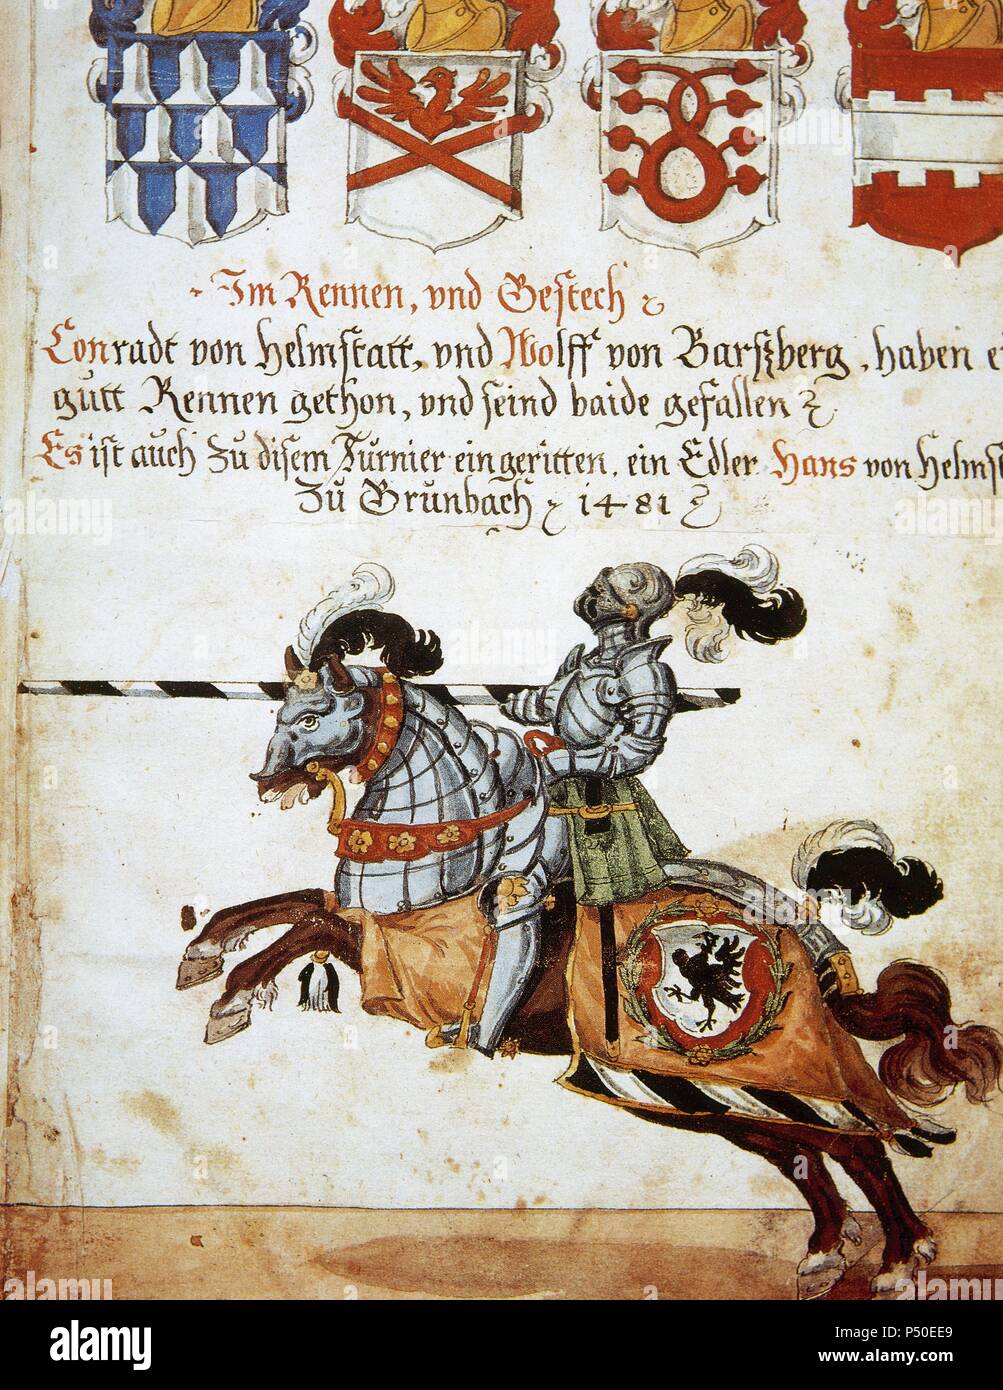 Im Rennen, vnd Gestech
Conradt von Helmstatt, vnd Wolff von Barszberg, haben e
gutt Rennen gethon, vnd seind baide gefallen
Es ist auch Zu disem Turnier eingeritten. ein Edler Hans von Helmst
Zu Grunbach 1481
alamy
alamy stock photo
P50EE9
www.alamy.com